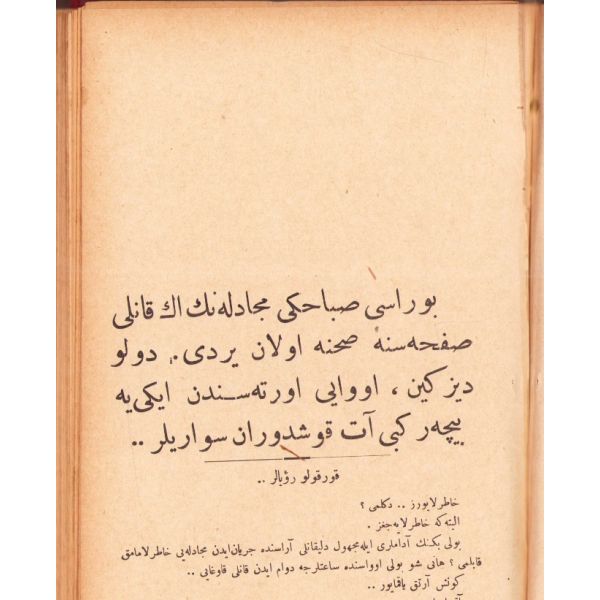 بوراسی صباحکی مجادله‌نك اك قانلی
صفحه‌سنه صحنه اولان یردی. دولو
دیزکین ، اووایی اورته‌سندن ایکی‌یه
بیچه‌ر کبی آت قوشدوران سواریلر ..
قورقولو رؤیالر ..
خاطرلایورز .. دکلمی ؟
البته که خاطرلایه‌جغز .
بولی بکنك آداملری ایله مجهول دلیقانلی آراسنده جریان ایدن مجادله‌یی خاطرلامامق
قابلمی ؟ هانی شو بولی اوواسنده ساعتلرجه دوام ایدن قانلی قاوغایی ..
کونش آرتق باقمایور ..